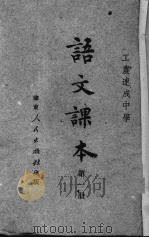 工農速成中學
語文課本
華東人民出版社出版